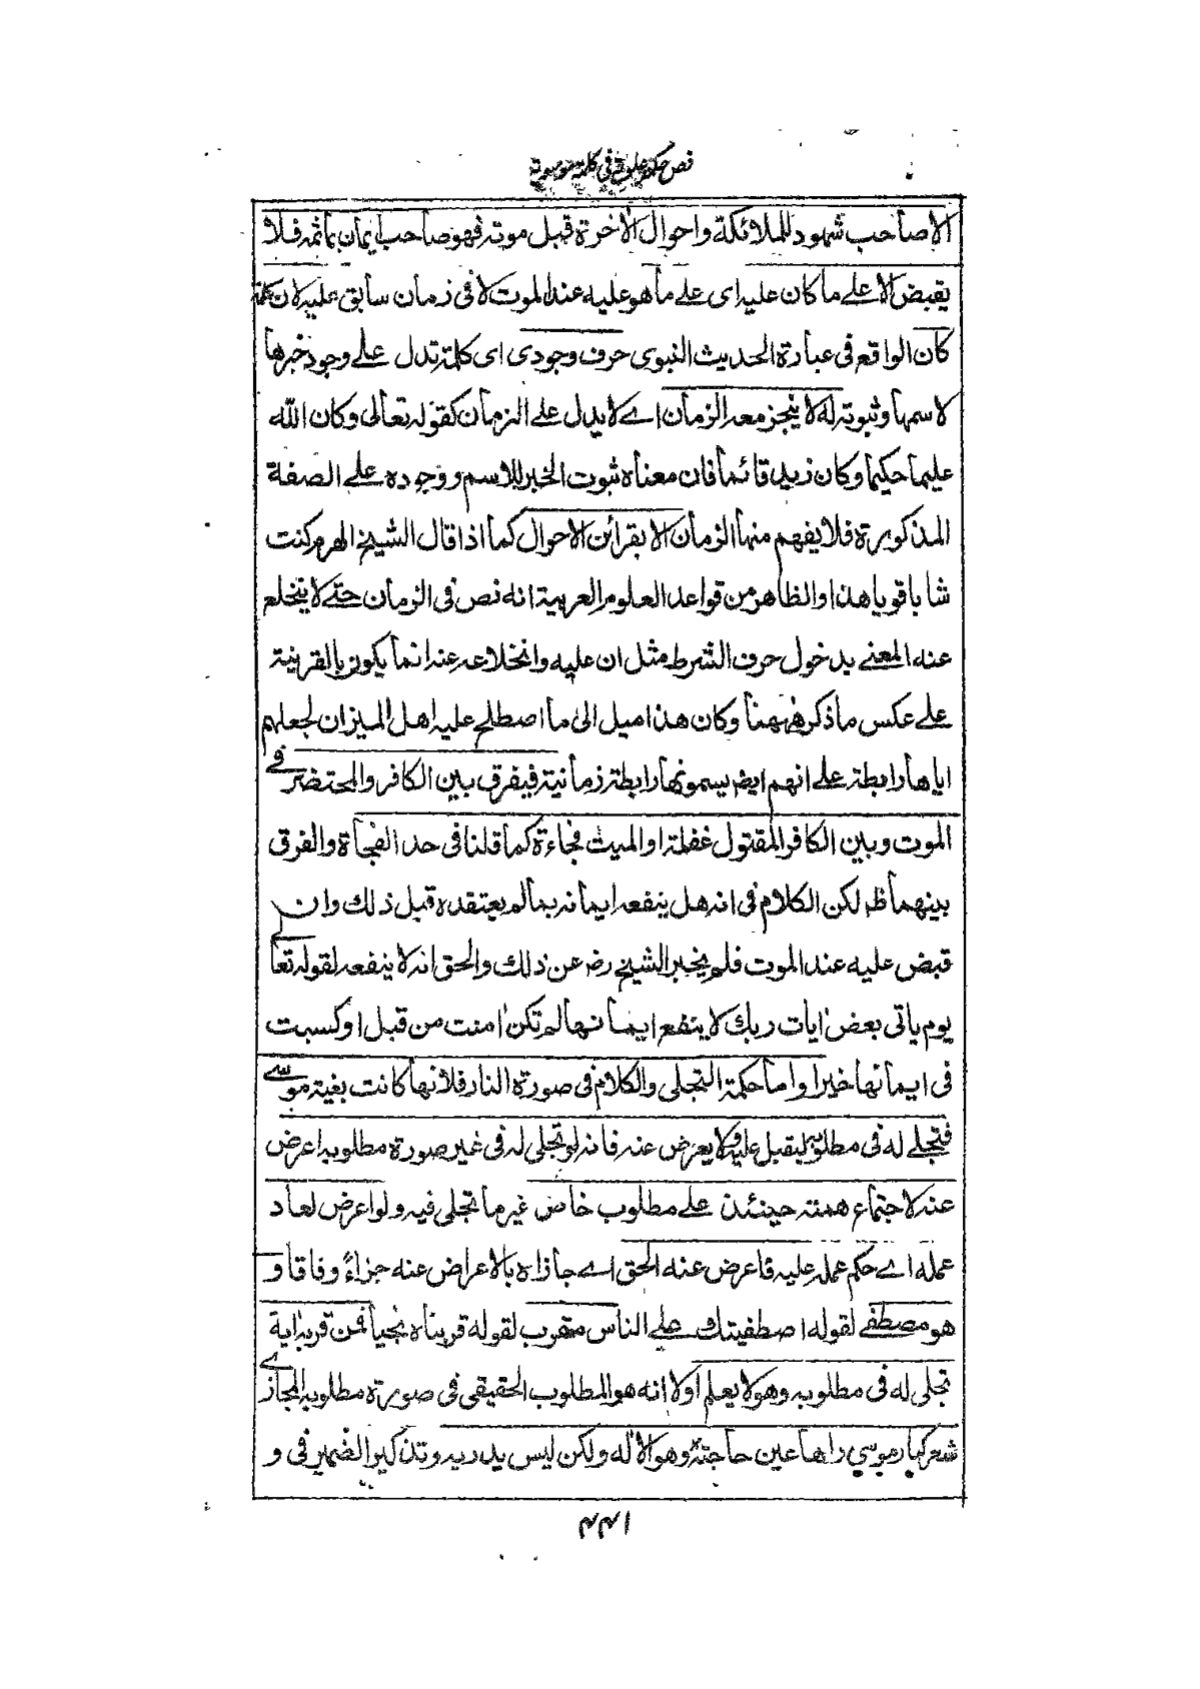 فص حكمة علوية في كلمة موسوية
الاصاحب شهود للملائكة واحوال الاخرة قبل موته فهو صاحب ايمان بماثمه فلا
يقبض الا علے ما كان عليه اى علے ما هو عليه عند الموت لا فى زمان سابق عليه لان كلمة
كان الواقع فى عبارة الحديث النبوى حرف وجودى اى كلمة تدل علے وجود خبرها
لاسمها وثبوته له لا ينجز معه الزمان اے لا يدل علے الزمان كقوله تعالى وكان الله
عليما حكيما وكان زيد قائما فان معناه ثبوت الخبر للاسم ووجوده علے الصفة
المذكورة فلا يفهم منها الزمان الا بقرائن الاحوال كما اذا قال الشيخ الهرم كنت
شابا قويا هذا والظاهر من قواعد العلوم العربية انه نص فى الزمان حتے لا ينخلع
عنه المعنے بدخول حرف الشرط مثل ان عليه وانخلاعه عنه انما يكون بالقرينة
علے عكس ما ذكر ههنا وكان هذا ميل الى ما اصطلح عليه اهل الميزان لجعلهم
اياها رابطة علے انهم ايض يسمونها رابطة زمانية فيفرق بين الكافر والمحتضر فے
الموت وبين الكافر المقتول غفلة او الميت فجاءة كما قلنا فى حد الفجأة والفرق
بينهما ظ لكن الكلام فى انه هل ينفعه ايمانه بما لم يعتقده قبل ذلك وان
قبض عليه عند الموت فلم يخبر الشيخ رضه عن ذلك والحق انه لا ينفعه لقوله تعالے
يوم ياتى بعض ايات ربك لا ينفع ايمانها لم تكن امنت من قبل او كسبت
فى ايمانها خيرا واما حكمة التجلى والكلام فى صورة النار فلانها كانت بغية موسے
فتجلے له فى مطلوبه ليقبل عليه ولا يعرض عنه فانه لو تجلى له فى غير صورة مطلوبه اعرض
عنه لاجتماع همته حينئذ علے مطلوب خاص غير ما تجلى فيه ولو اعرض لعاد
عمله اے حكم عمله عليه فاعرض عنه الحق اے جازاه بالاعراض عنه جزاءً وفاقا و
هو مصطفے لقوله اصطفيتك علے الناس مقرب لقوله قربناه نجيا فمن قربه اية
تجلى له فى مطلوبه وهو لا يعلم اولا انه هو المطلوب الحقيقى فى صورة مطلوبه المجازے
شعر كنار موسي راها عين حاجته وهو الاله ولكن ليس يدريه وتذكير الضمير فى و